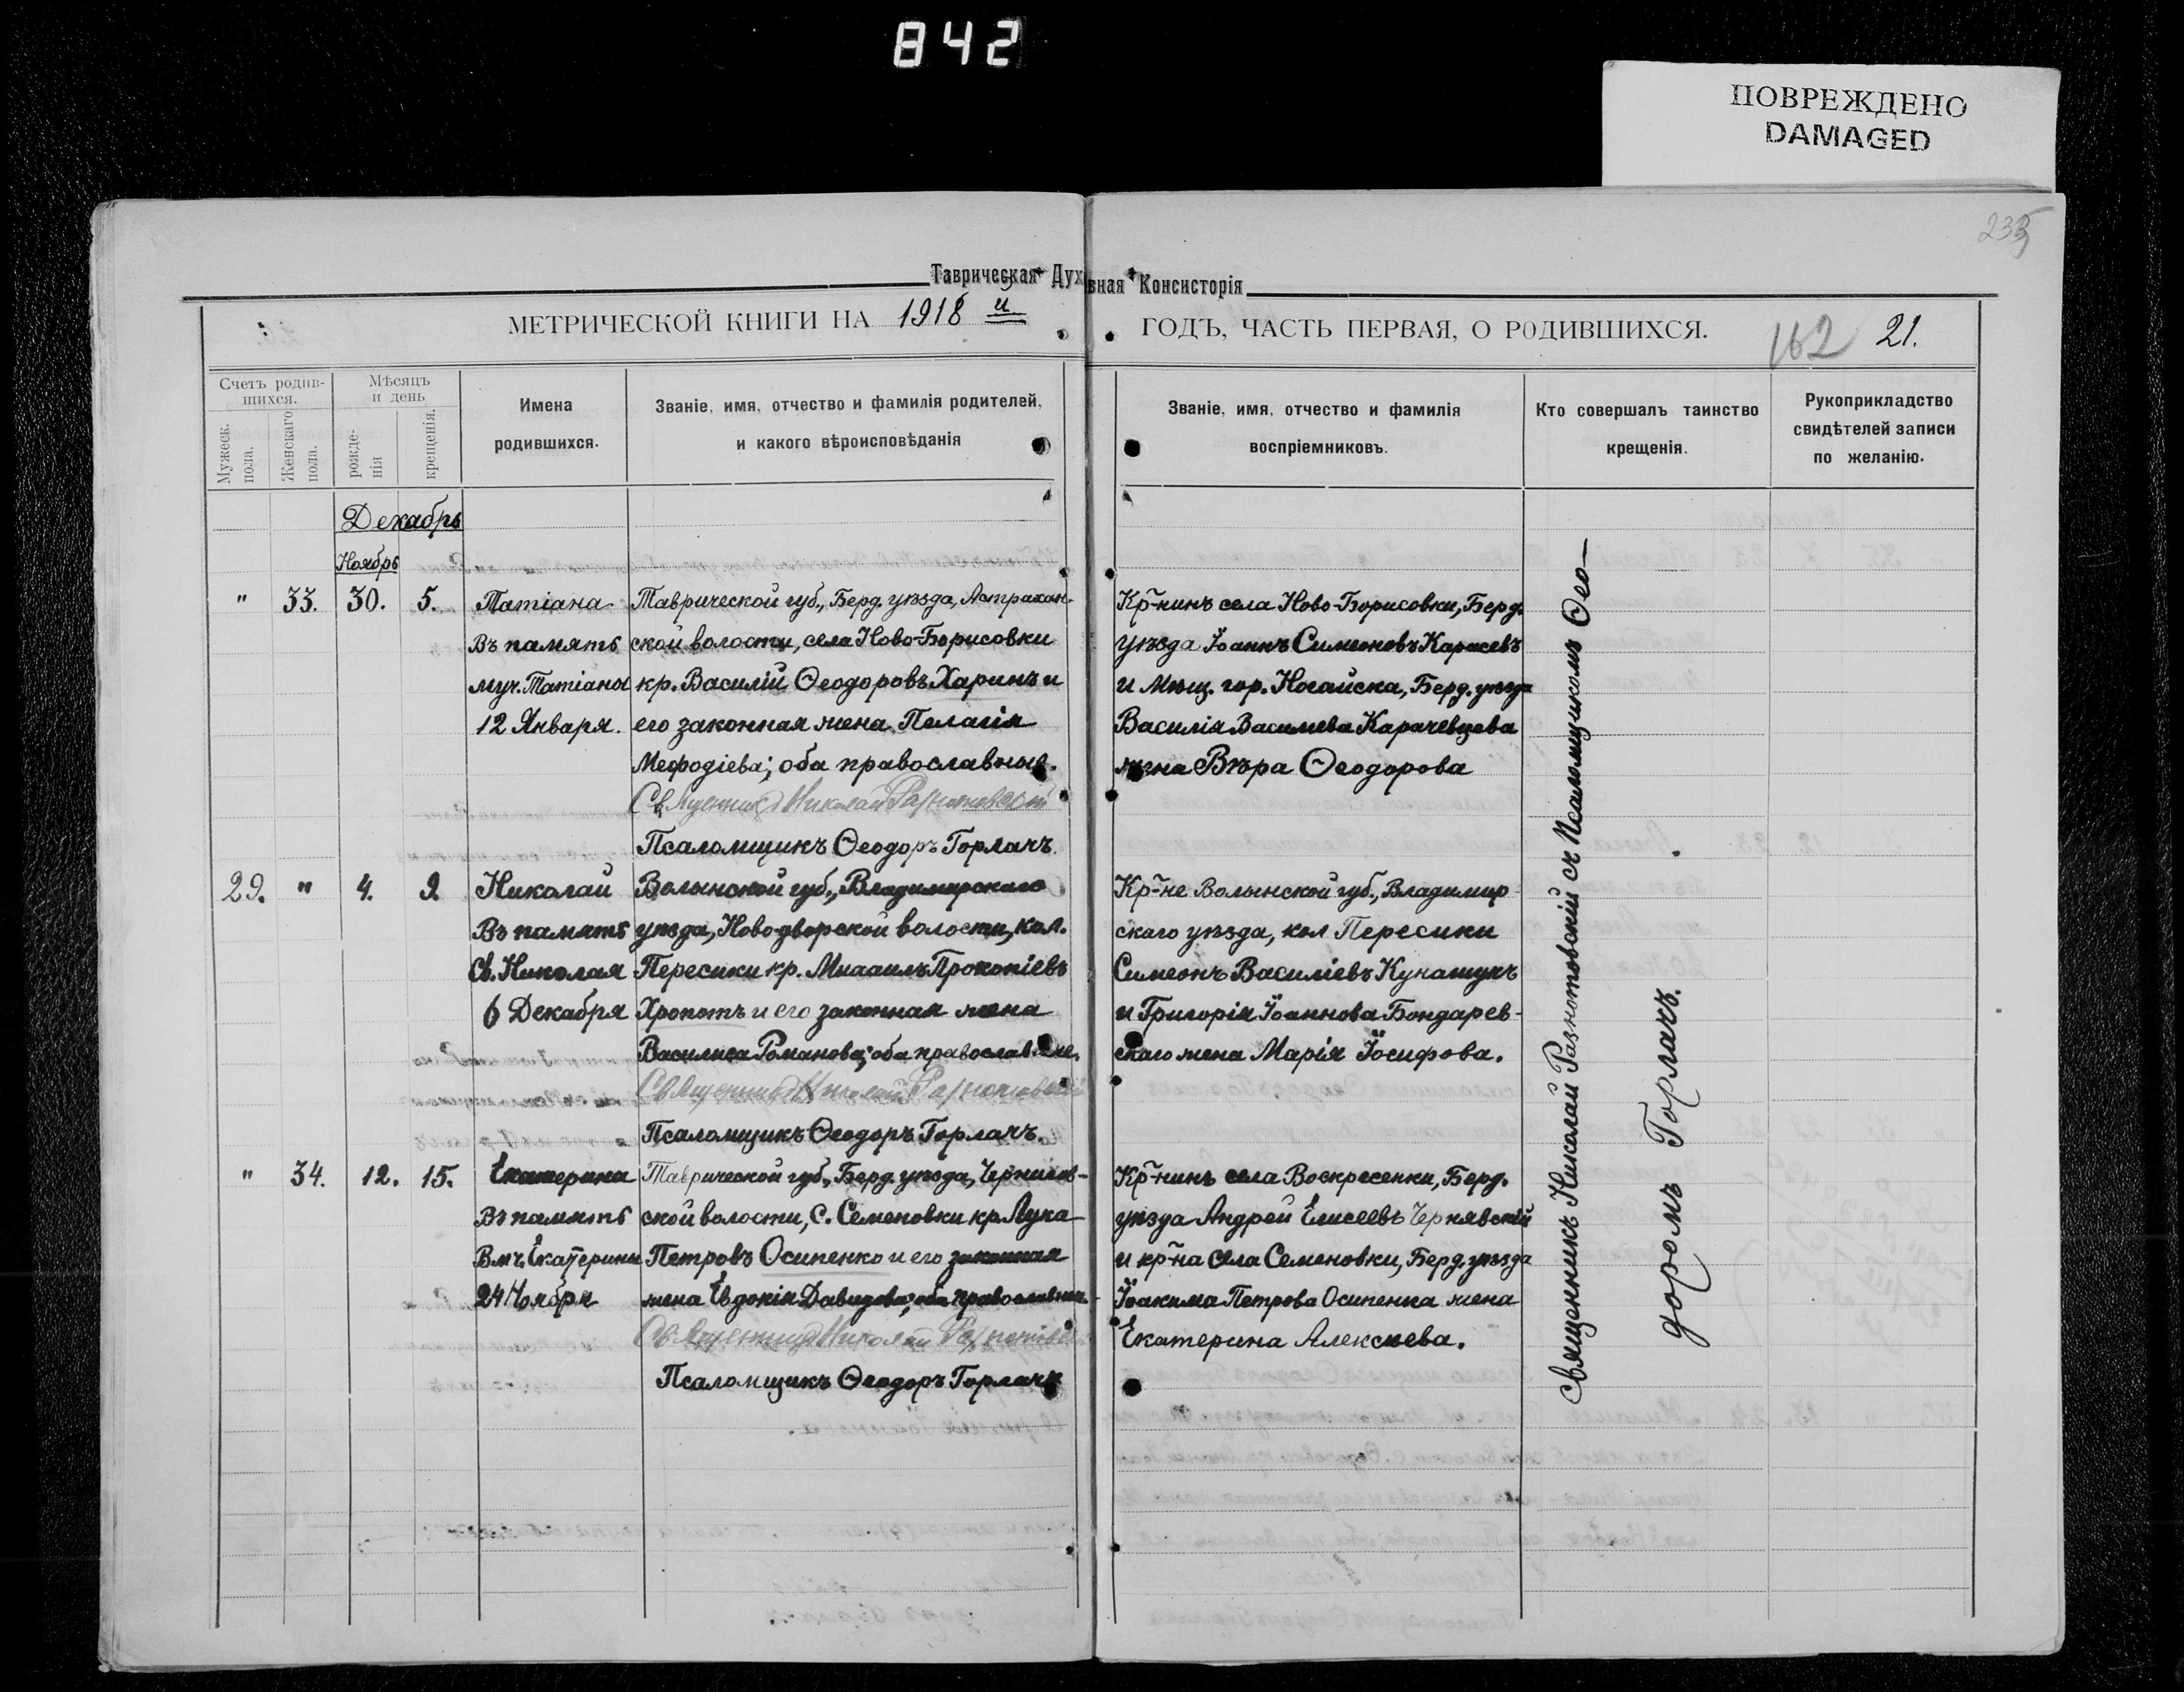 842
ПОВРЕЖДЕНО
DAMAGED
Таврическая Духовная Консисторія
МЕТРИЧЕСКОЙ КНИГИ НА 1918 й ГОДЪ, ЧАСТЬ ПЕРВАЯ, О РОДИВШИХСЯ.
162 21.
Счетъ родив-
шихся.
Мужеск.
пола.
Женскаго
пола.
Мѣсяцъ
и день
рожде-
нія
крещенія.
Имена
родившихся.
Званіе, имя, отчество и фамилія родителей,
и какого вѣроисповѣданія
Званіе, имя, отчество и фамилія
воспріемниковъ.
Кто совершалъ таинство
крещенія.
Рукоприкладство
свидѣтелей записи
по желанію.
Декабрь
Ноябрь
" 33. 30. 5.
Татіана
Въ память
муч. Татіаны
12 Января.
Таврической губ., Берд. уѣзда, Астрахан-
ской волости, села Ново-Борисовки
кр. Василій Ѳеодоровъ Харинъ и
его законная жена Пелагія
Меѳодіева; оба православные.
Священникъ Николай Разнотовскій
Псаломщикъ Ѳеодоръ Горлачъ.
Кр-нинъ села Ново-Борисовки, Берд.
уѣзда Іоаннъ Симеоновъ Карасевъ
и Мѣщ. гор. Ногайска, Берд. уѣзда
Василія Васильева Карачевцева
жена Вѣра Ѳеодорова
29. " 4. 9.
Николай
Въ память
Св. Николая
6 Декабря
Волынской губ., Владимирскаго
уѣзда, Новодворской волости, кол.
Пересики кр. Михаилъ Прокопіевъ
Хропотъ и его законная жена
Василиса Романова; оба православные.
Священникъ Николай Разнотовскій
Псаломщикъ Ѳеодоръ Горлачъ.
Кр-не Волынской губ., Владимир-
скаго уѣзда, кол Пересики
Симеонъ Василіевъ Кунашукъ
и Григорія Іоаннова Бондарев-
скаго жена Марія Іосифова.
" 34. 12. 15.
Екатерина
Въ память
Вмч. Екатерины
24 Ноября
Таврической губ., Берд. уѣзда, Чернигов-
ской волости, С. Семеновки кр. Лука
Петровъ Осипенко и его законная
жена Евдокія Давидова; оба православные
Священникъ Николай Разнотовскій
Псаломщикъ Ѳеодоръ Горлачъ
Кр-нинъ села Воскресенки, Берд.
уѣзда Андрей Елисеевъ Чернявскій
и кр-на села Семеновки, Берд. уѣзда
Іоакима Петрова Осипенка жена
Екатерина Алексѣева.
Священникъ Николай Разнотовскій съ Псаломщикомъ Ѳео-
доромъ Горлачъ.